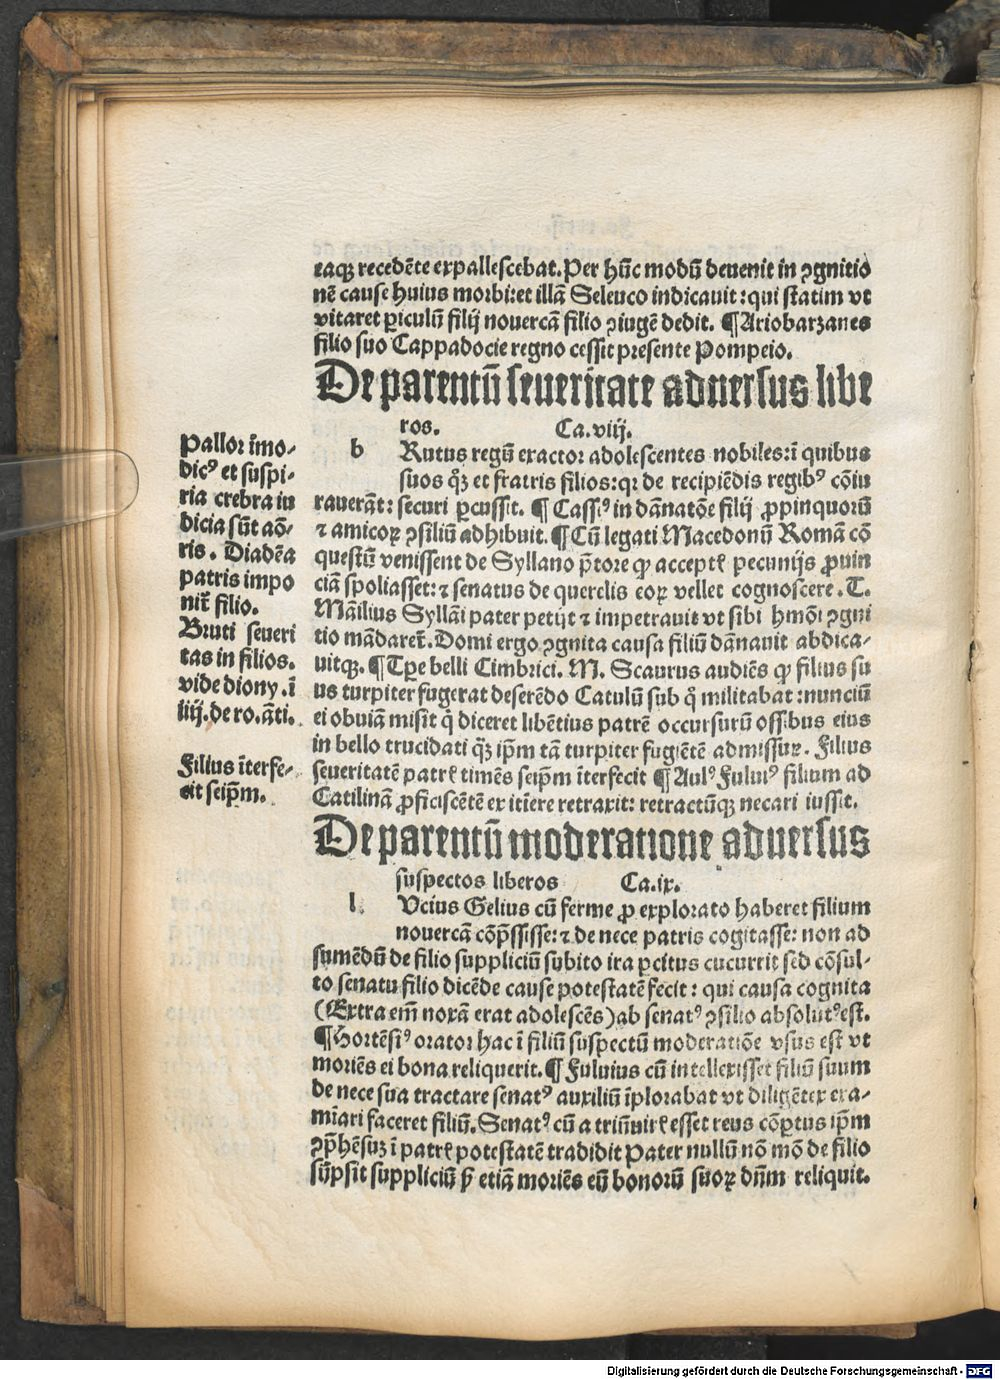 eaqꝫ recedēte expallescebat. Per hūc modū deuenit in ꝯgnitio
nē cause huius morbi: et illā Seleuco indicauit: qui statim vt
vitaret ꝑiculū filij nouercā filio ꝯiugē dedit. ¶ Ariobarzanes
filio suo Cappadocie regno cessit presente Pompeio.
De parentū seueritate aduersus libe
ros. Ca. viij.
b Rutus regū exactor adolescentes nobiles: ī quibus
suos qꝫ et fratris filios: qꝛ de recipiēdis regibꝰ cōiu
rauerāt: securi ꝑcussit. ¶ Cassiꝰ in dānatōe filij ꝓpinquorū
⁊ amicoꝝ ꝯsiliū adhibuit. ¶ Cū legati Macedonū Romā cō
questū venissent de Syllano p̄tore ꝙ acceptꝭ pecunijs ꝓuin
ciā spoliasset: ⁊ senatus de querelis eoꝝ vellet cognoscere. T.
Māilius Syllāi pater petijt ⁊ impetrauit vt sibi hmōi ꝯgni
tio mādaret̄. Domi ergo ꝯgnita causa filiū dānauit abdica-
uitqꝫ. ¶ Tꝑe belli Cimbrici. M. Scaurus audiēs ꝙ filius su
us turpiter fugerat deserēdo Catulū sub q̄ militabat: nunciū
ei obuiā misit q̄ diceret libētius patrē occursurū ossibus eius
in bello trucidati qꝫ ip̄m tā turpiter fugiētē admissuꝝ. Filius
seueritatē patrꝭ timēs seip̄m īterfecit ¶ Aulꝰ Fuluiꝰ filium ad
Catilinā ꝓficiscētē ex itīere retraxit: retractūqꝫ necari iussit.
De parentū moderatione aduersus
suspectos liberos Ca. ix.
l Vcius Gelius cū ferme ꝓ explorato haberet filium
nouercā cōp̄ssisse: ⁊ de nece patris cogitasse: non ad
sumēdū de filio suppliciū subito ira ꝑcitus cucurrit sed cōsul-
to senatu filio dicēde cause potestatē fecit: qui causa cognita
(Extra em̄ noxā erat adolescēs) ab senatꝰ ꝯsilio absolutꝰ est.
¶ Hortēsiꝰ orator hac ī filiū suspectū moderatiōe vsus est vt
moriēs ei bona reliquerit. ¶ Fuluius cū intellexisset filiū suum
de nece sua tractare senatꝰ auxiliū īplorabat vt diligēter exa-
mīari faceret filiū. Senatꝰ cū a triūuirꝭ esset reus cōꝑtus ip̄m
ꝯp̄hēsuꝫ ī patrꝭ potestatē tradidit Pater nullū nō mō de filio
sūpsit suppliciū sꝫ etiā moriēs eū bonorū suoꝝ dn̄m reliquit.
Pallor īmo-
dicꝰ et suspi-
ria crebra in
dicia sūt aō-
ris. Diadēa
patris impo
nit̄ filio.
Bruti seueri
tas in filios.
vide diony. ī
iiij. de ro. āti.
Filius īterfe-
cit seip̄m.
Digitalisierung gefördert durch die Deutsche Forschungsgemeinschaft - DFG